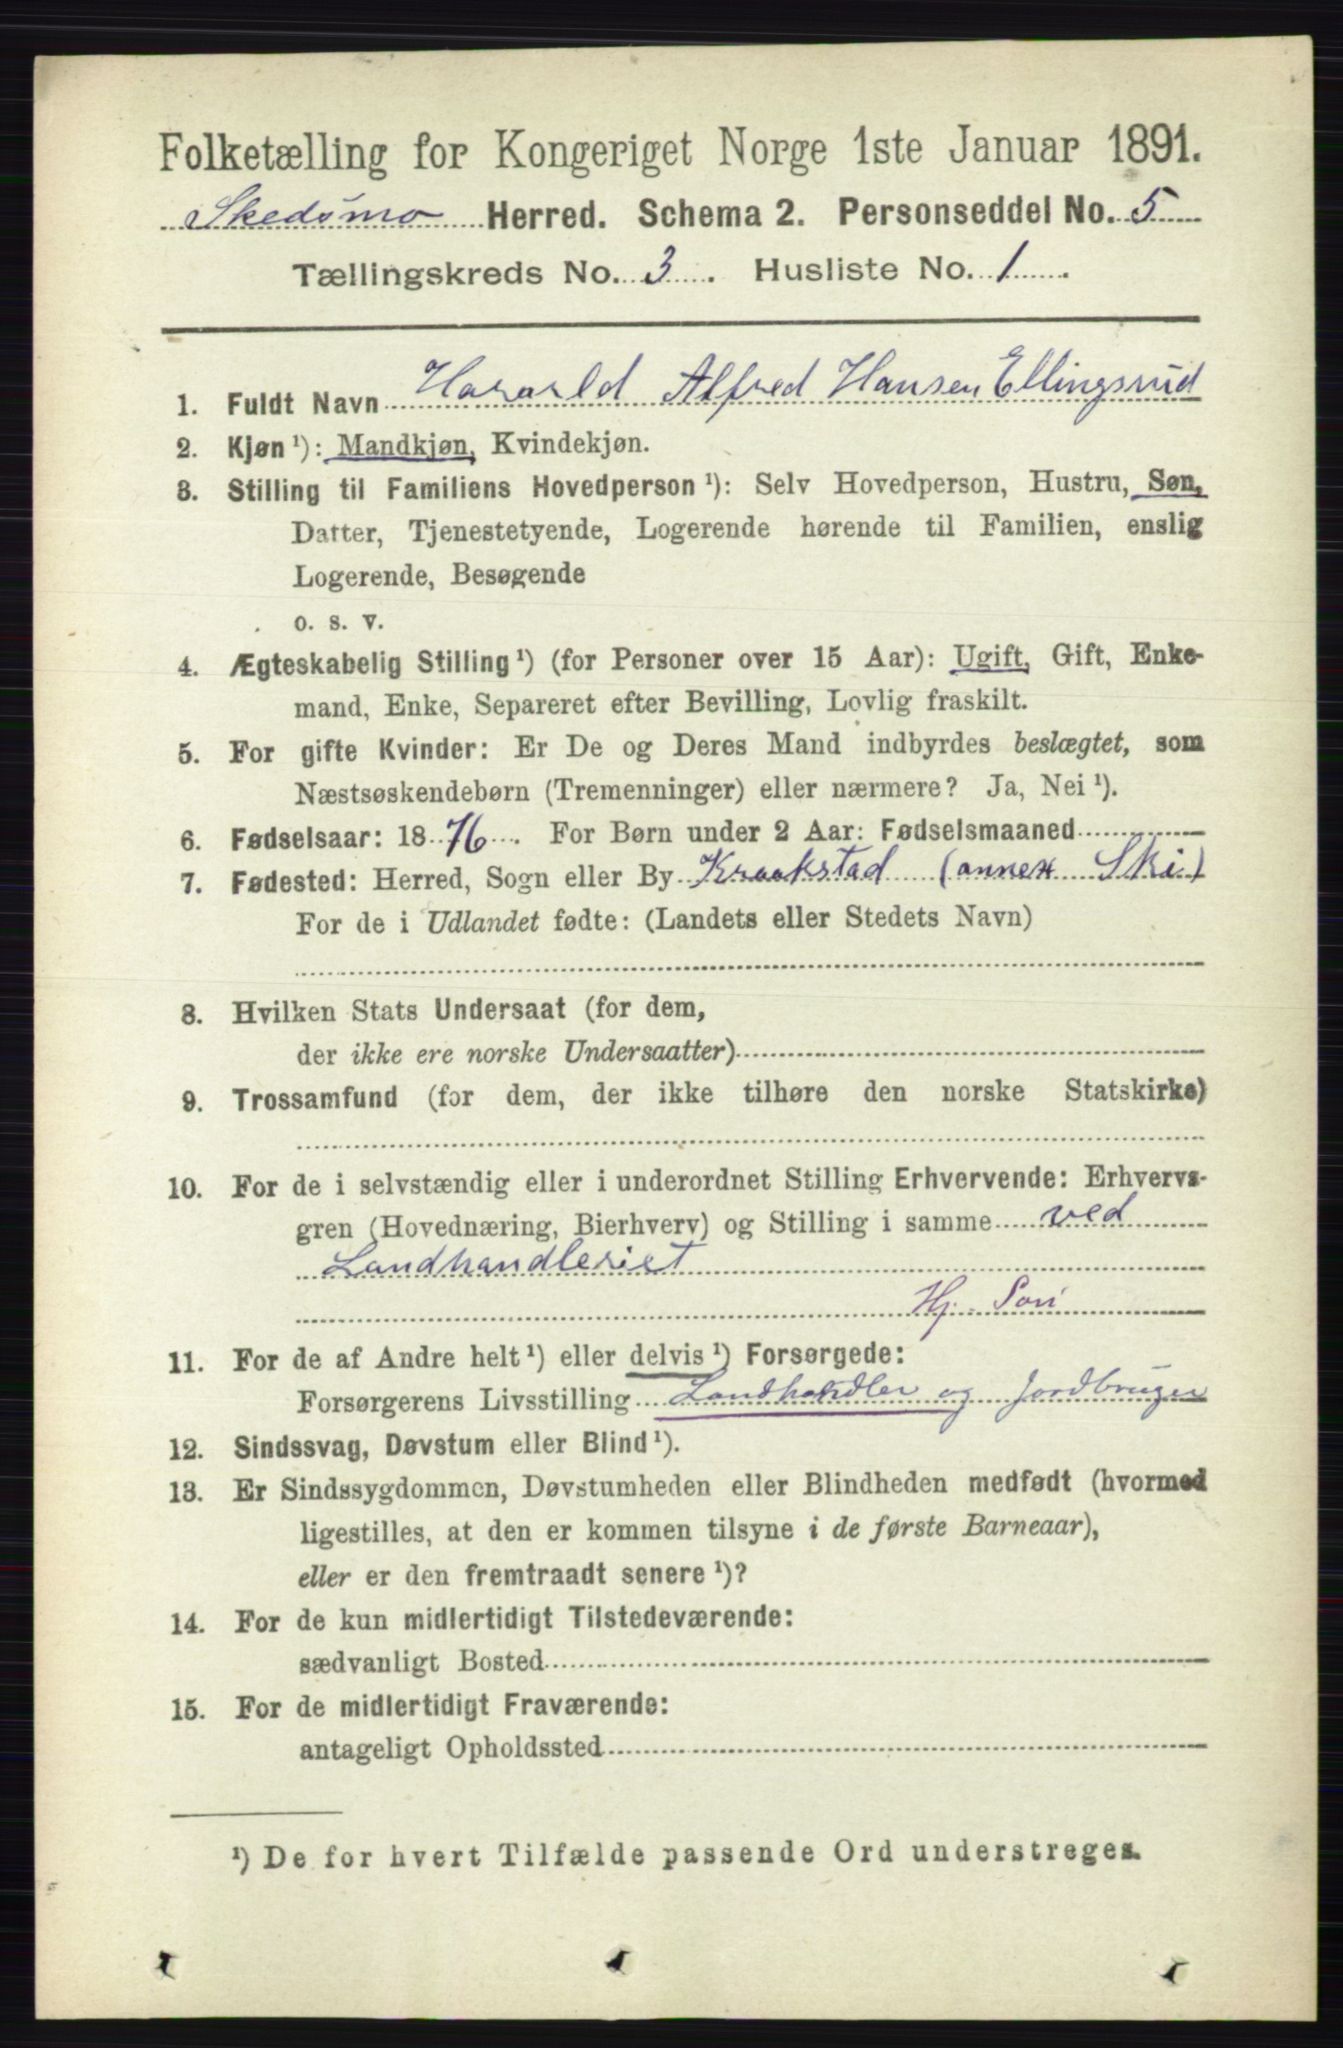 Folketælling for Kongeriget Norge 1ste Januar 1891.
Skedsmo Herred. Schema 2. Personseddel No. 5
Tællingskreds No. 3. Husliste No. 1.
1. Fuldt Navn Harald Alfred Hansen Ellingsrud
2. Kjøn ¹): Mandkjøn, Kvindekjøn.
3. Stilling til Familiens Hovedperson ¹): Selv Hovedperson, Hustru, Søn,
Datter, Tjenestetyende, Logerende hørende til Familien, enslig
Logerende, Besøgende
o. s. v.
4. Ægteskabelig Stilling ¹) (for Personer over 15 Aar): Ugift, Gift, Enke-
mand, Enke, Separeret efter Bevilling, Lovlig fraskilt.
5. For gifte Kvinder: Er De og Deres Mand indbyrdes beslægtet, som
Næstsøskendebørn (Tremenninger) eller nærmere? Ja, Nei ¹).
6. Fødselsaar: 1876. For Børn under 2 Aar: Fødselsmaaned
7. Fødested: Herred, Sogn eller By Kraakstad (annex Ski)
For de i Udlandet fødte: (Landets eller Stedets Navn)
8. Hvilken Stats Undersaat (for dem,
der ikke ere norske Undersaatter)
9. Trossamfund (for dem, der ikke tilhøre den norske Statskirke)
10. For de i selvstændig eller i underordnet Stilling Erhvervende: Erhvervs-
gren (Hovednæring, Bierhverv) og Stilling i samme ved
Landhandleriet
Hj. Søn
11. For de af Andre helt ¹) eller delvis ¹) Forsørgede:
Forsørgerens Livsstilling Landhandler og Jordbruger
12. Sindssvag, Døvstum eller Blind ¹).
13. Er Sindssygdommen, Døvstumheden eller Blindheden medfødt (hvormed
ligestilles, at den er kommen tilsyne i de første Barneaar),
eller er den fremtraadt senere ¹)?
14. For de kun midlertidigt Tilstedeværende:
sædvanligt Bosted
15. For de midlertidigt Fraværende:
antageligt Opholdssted
¹) De for hvert Tilfælde passende Ord understreges.